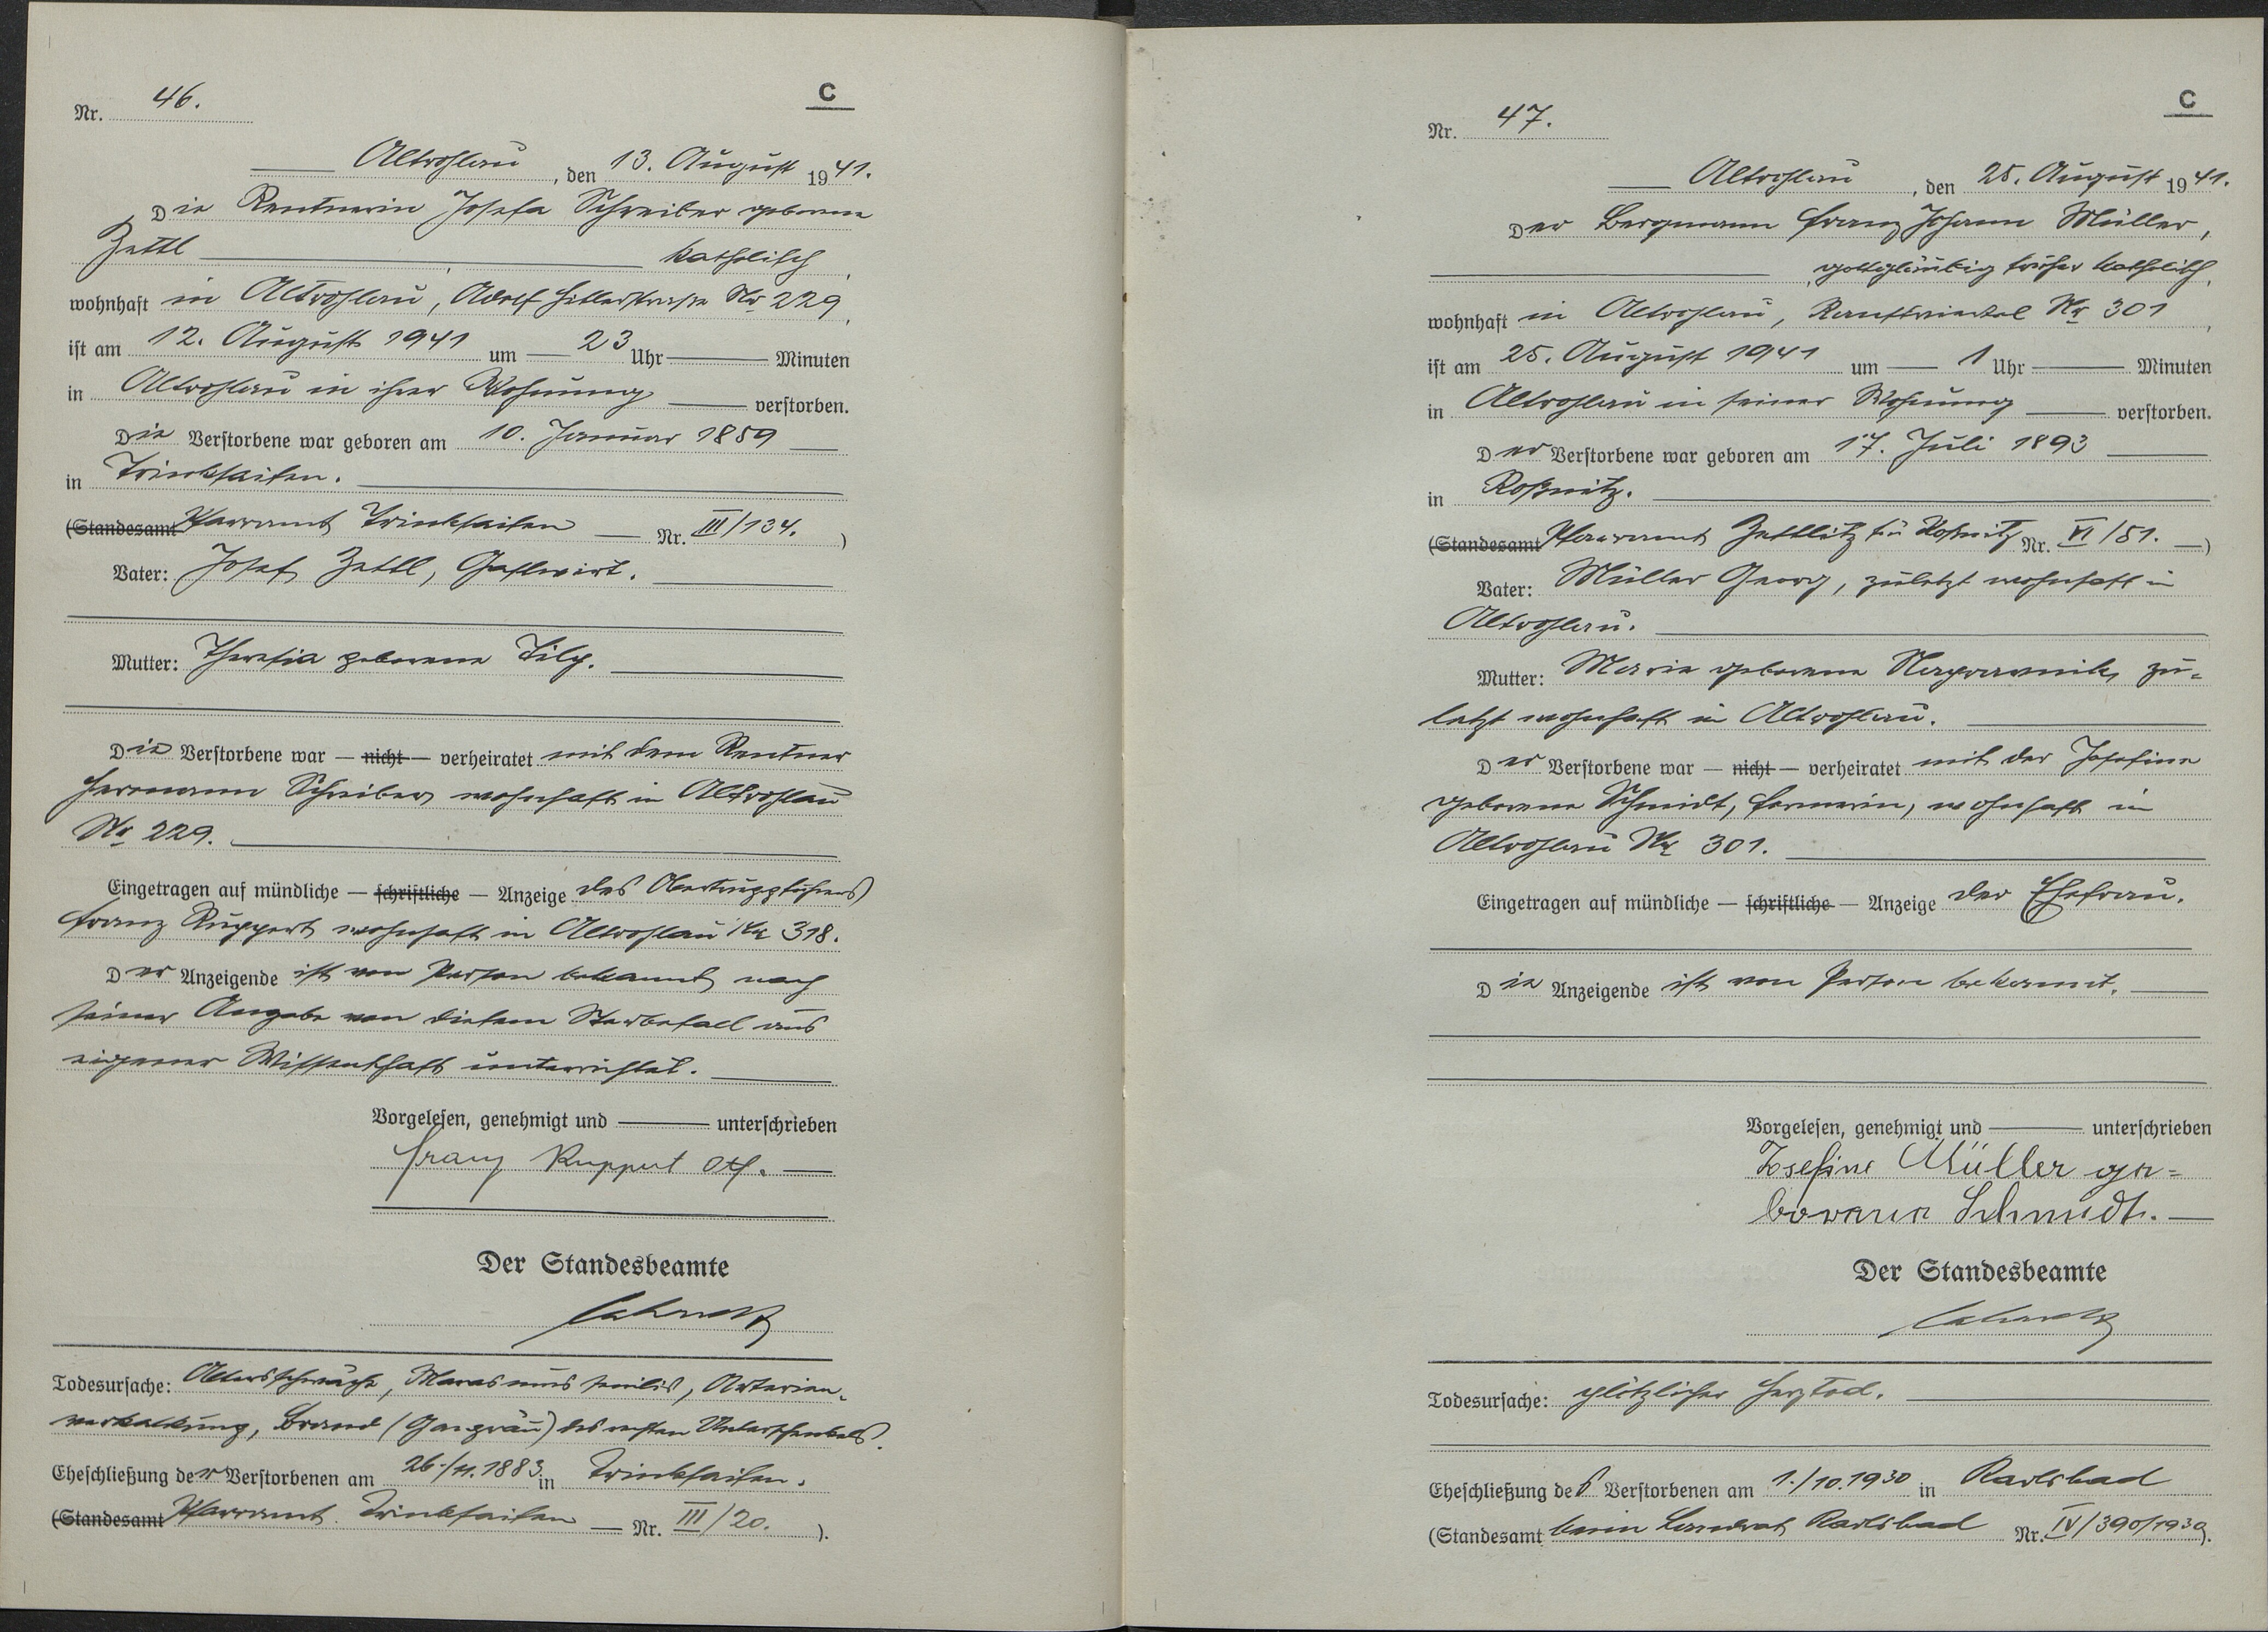 Nr. 46.
C
Altrohlau, den 13. August 1941.
Die Rentnerin Josefa Schreiber geborene
Zettl katholisch,
wohnhaft in Altrohlau, Adolf Hitlerstrasse Nr 229,
ist am 12. August 1941 um 23 Uhr Minuten
in Altrohlau in ihrer Wohnung verstorben.
Die Verstorbene war geboren am 10. Januar 1859
in Trinkseifen.
(Standesamt Pfarramt Trinkseifen Nr. III/134.)
Vater: Josef Zettl, Gastwirt.
Mutter: Theresia geborene
Die Verstorbene war — nicht — verheiratet mit dem Rentner
Hermann Schreiber wohnhaft in Altrohlau
Nr 229.
Eingetragen auf mündliche — schriftliche — Anzeige des Obertruppführers
Franz Ruppert wohnhaft in Altrohlau Nr 318.
Der Anzeigende ist von Person bekannt nach
seiner Angabe von diesem Sterbefall aus
eigener Wissenschaft unterrichtet.
Vorgelesen, genehmigt und unterschrieben
Franz Ruppert Otf.
Der Standesbeamte
Todesursache: Altersschwäche, Marasmus senilis, Arterien-
verkalkung, Brand (Gangrän) des rechten Unterschenkels.
Eheschließung der Verstorbenen am 26./11.1883 in Trinkseifen.
(Standesamt Pfarramt Trinkseifen Nr. III/20.).
Nr. 47.
C
Altrohlau, den 25. August 1941.
Der Bergmann Franz Johann Müller,
gottgläubig früher katholisch,
wohnhaft in Altrohlau, Nr 301,
ist am 25. August 1941 um 1 Uhr Minuten
in Altrohlau in seiner Wohnung verstorben.
Der Verstorbene war geboren am 17. Juli 1893
in Roßnitz.
(Standesamt Pfarramt Zettlitz für Roßnitz Nr. VI/51.)
Vater: Müller Georg, zuletzt wohnhaft in
Altrohlau.
Mutter: Marie geborene zu-
letzt wohnhaft in Altrohlau.
Der Verstorbene war — nicht — verheiratet mit der Josefine
geborene Schmidt, wohnhaft in
Altrohlau Nr 301.
Eingetragen auf mündliche — schriftliche — Anzeige der Ehefrau.
Die Anzeigende ist von Person bekannt.
Vorgelesen, genehmigt und unterschrieben
Josefine Müller ge-
borene Schmidt.
Der Standesbeamte
Todesursache: plötzlicher Herztod.
Eheschließung des Verstorbenen am 1./10.1930 in Karlsbad
(Standesamt beim Landrat Karlsbad Nr. IV/390/1930).